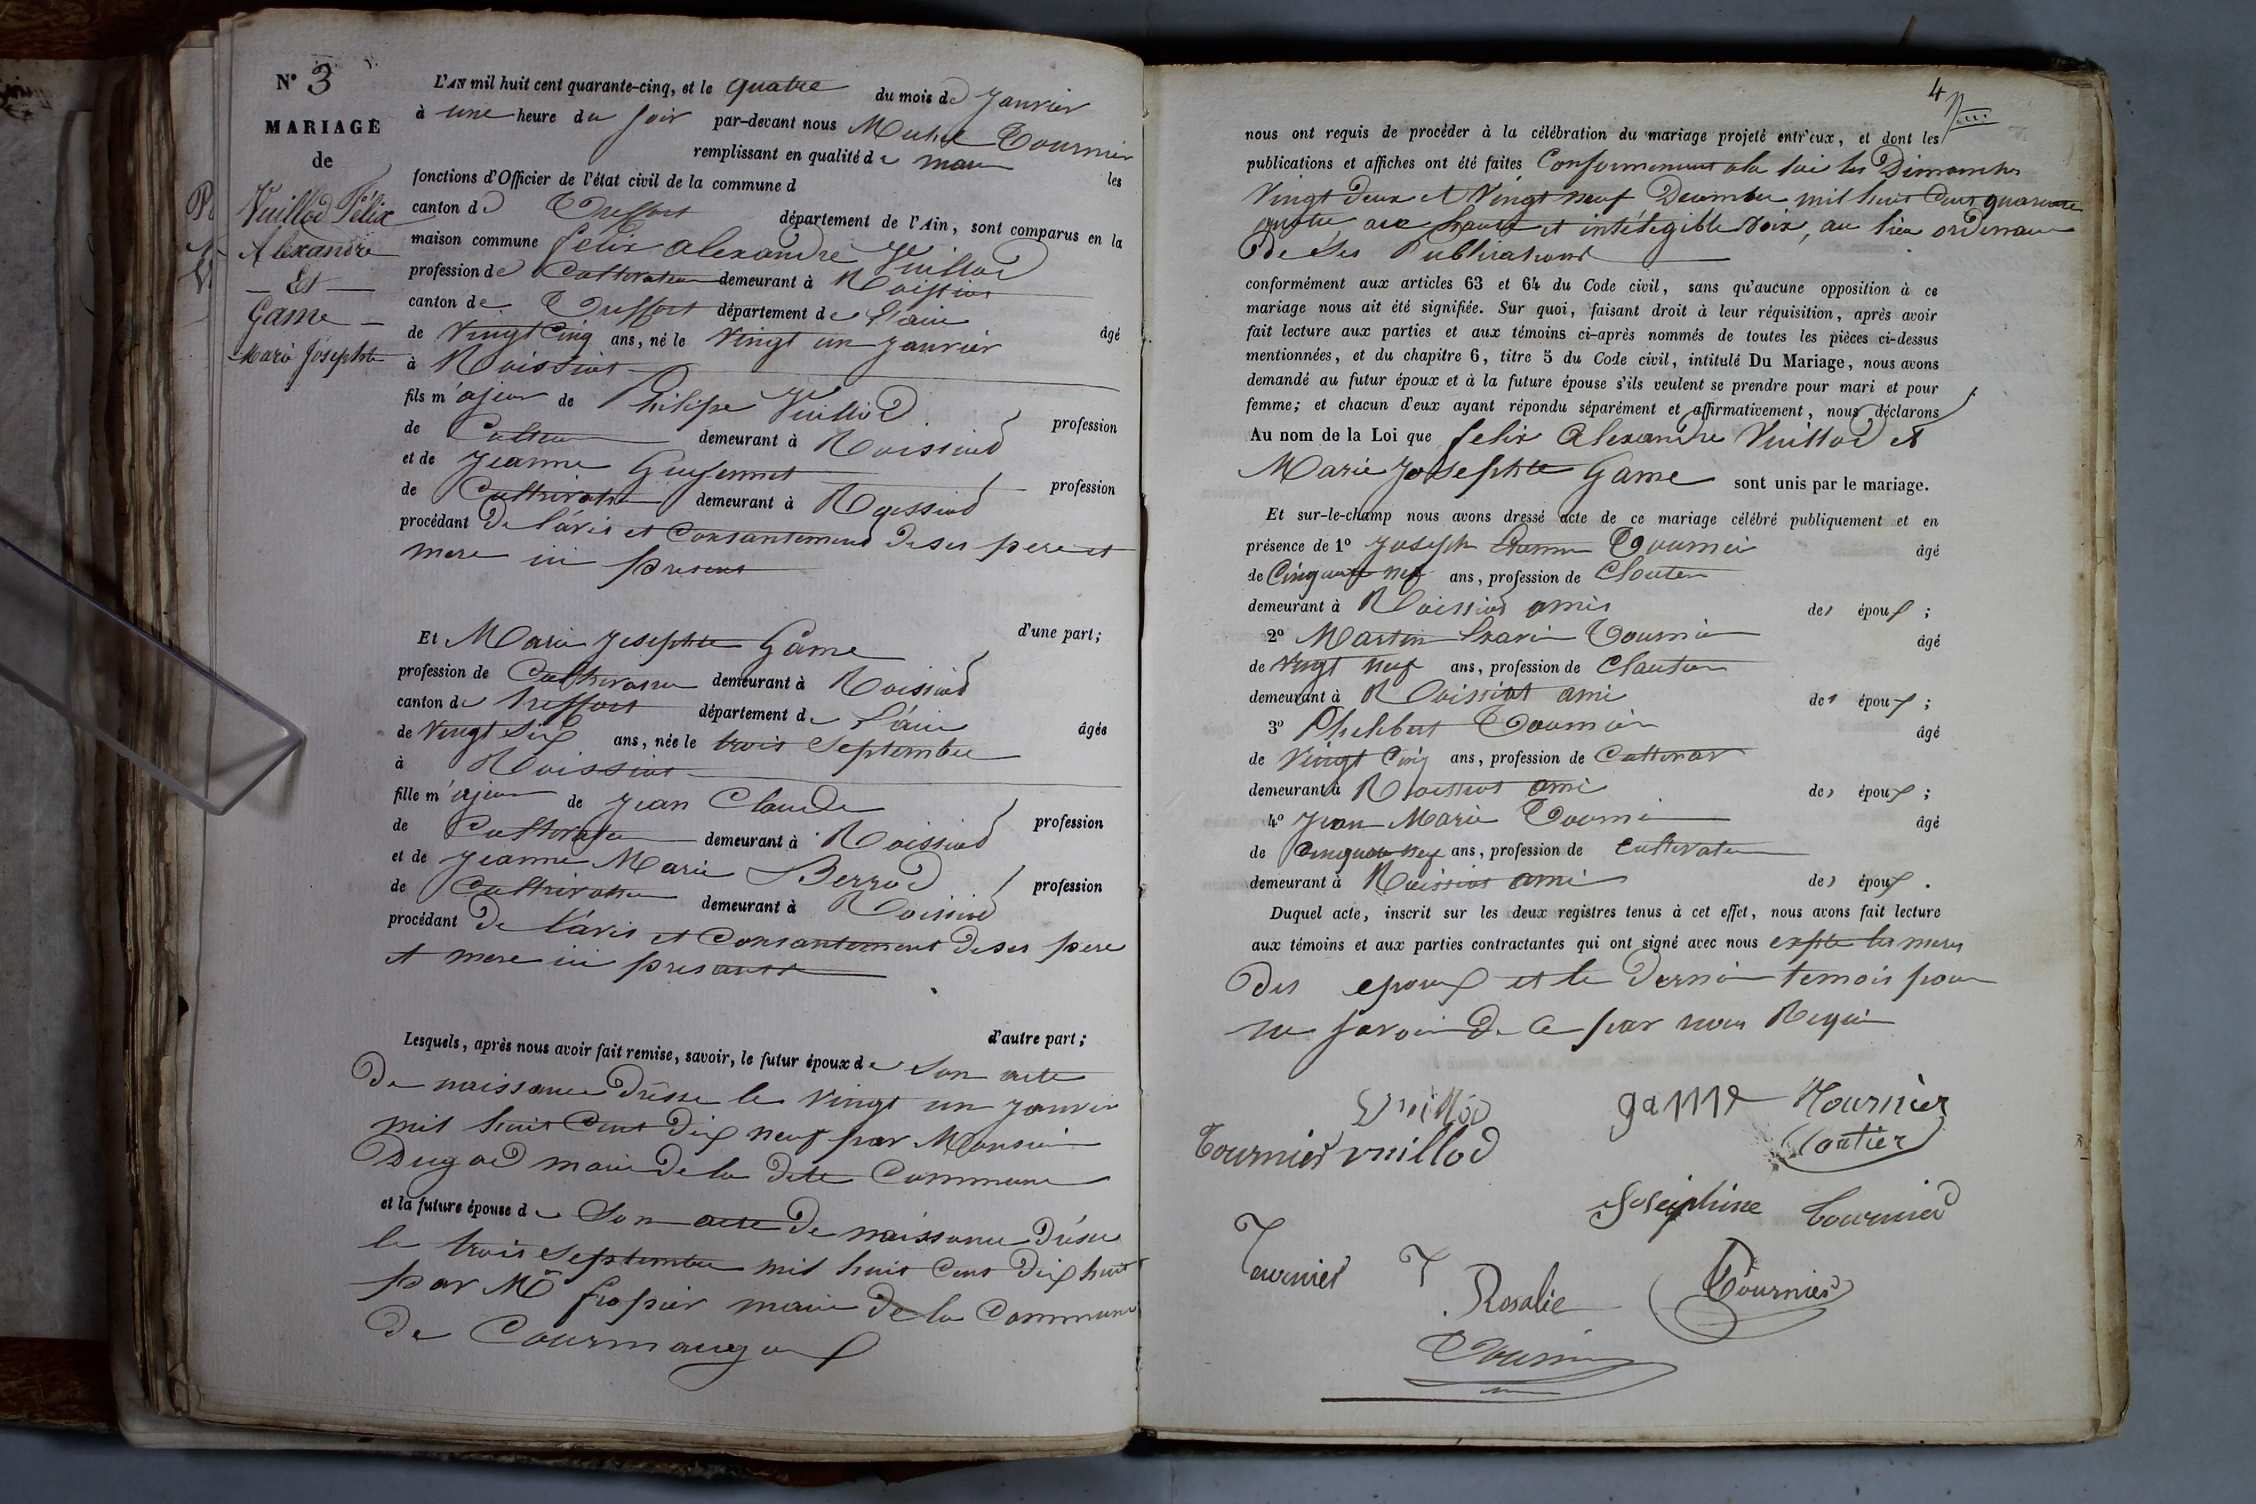 N° 3
MARIAGE
de
Vuillod Félix
Alexandre
Et
Game
Marie Josephte
L'AN mil huit cent quarante-cinq, et le quatre du mois de Janvier
à une heure du soir par-devant nous Michel Tournier
remplissant en qualité de maire les
fonctions d'Officier de l'état civil de la commune d
canton de Treffort département de l'Ain, sont comparus en la
maison commune felix alexandre Vuillod
profession de Cultivateur demeurant à Roissiat
canton de Treffort département de l'ain âgé
de Vingt Cinq ans, né le Vingt un Janvier
à Roissiat
fils majeur de Philipe Vuillod profession
de demeurant à Roissiat
et de Jeanne profession
de Cultivatrice demeurant à Roissiat
procédant De l'avis et Consantement de ses pere et
mere ici présent
d'une part;
Et Marie Josephte Game
profession de Cultivatrice demeurant à Roissiat
canton de treffort département de l'ain âgée
de Vingt Six ans, née le trois Septembre
à Roissiat
fille majeur de Jean Claude profession
de Cultivateur demeurant à Roissiat
et de Jeanne Marie Berrod profession
de Cultivatrice demeurant à Roissiat
procédant De l'avis et Consantement de ses pere
et mere ici présants
d'autre part;
Lesquels, après nous avoir fait remise, savoir, le futur époux de Son acte
De naissance Drésse le Vingt un Janvier
mil huit Cent Dix neuf par Monsieur
Dugad maire de la dite Commune
et la future épouse de Son acte De naissance Drésse
le trois Septembre mil huit Cent Dix huit
par Mr fropier maire de la Commune
de Courmangoux
4
nous ont requis de procéder à la célébration du mariage projeté entr'eux, et dont les
publications et affiches ont été faites Conformement a la loi les Dimanches
Vingt Deux et Vingt neuf Decembre mil huit Cent quarante
quatre a haute et intélegible Voix, au lieu ordinaire
De Ses Publications
conformément aux articles 63 et 64 du Code civil, sans qu'aucune opposition à ce
mariage nous ait été signifiée. Sur quoi, faisant droit à leur réquisition, après avoir
fait lecture aux parties et aux témoins ci-après nommés de toutes les pièces ci-dessus
mentionnées, et du chapitre 6, titre 5 du Code civil, intitulé Du Mariage, nous avons
demandé au futur époux et à la future épouse s'ils veulent se prendre pour mari et pour
femme; et chacun d'eux ayant répondu séparément et affirmativement, nous déclarons
Au nom de la Loi que felix Alexandre Vuillod et
Marie Josephte Game sont unis par le mariage.
Et sur-le-champ nous avons dressé acte de ce mariage célébré publiquement et en
présence de 1° Joseph Tournier âgé
de Cinquante neuf ans, profession de Cloutier
demeurant à Roissiat amis des époux;
2° Martin Tournier âgé
de Vingt neuf ans, profession de Cloutier
demeurant à Roissiat ami des époux;
3° Philibert Tournier âgé
de Vingt Cinq ans, profession de Cultivateur
demeurant à Roissiat ami des époux;
4° Jean Marie Tournier âgé
de Cinquante neuf ans, profession de Cultivateur
demeurant à Roissiat ami des époux.
Duquel acte, inscrit sur les deux registres tenus à cet effet, nous avons fait lecture
aux témoins et aux parties contractantes qui ont signé avec nous expte les meres
Des epoux et le Dernier temois pour
ne savoir De Ce par nous Requi
Vuillod game Tournier
Cloutier
Tournier vuillod
Joséphine Tournier
Tournier T. Rosalie Tournier
Tournier